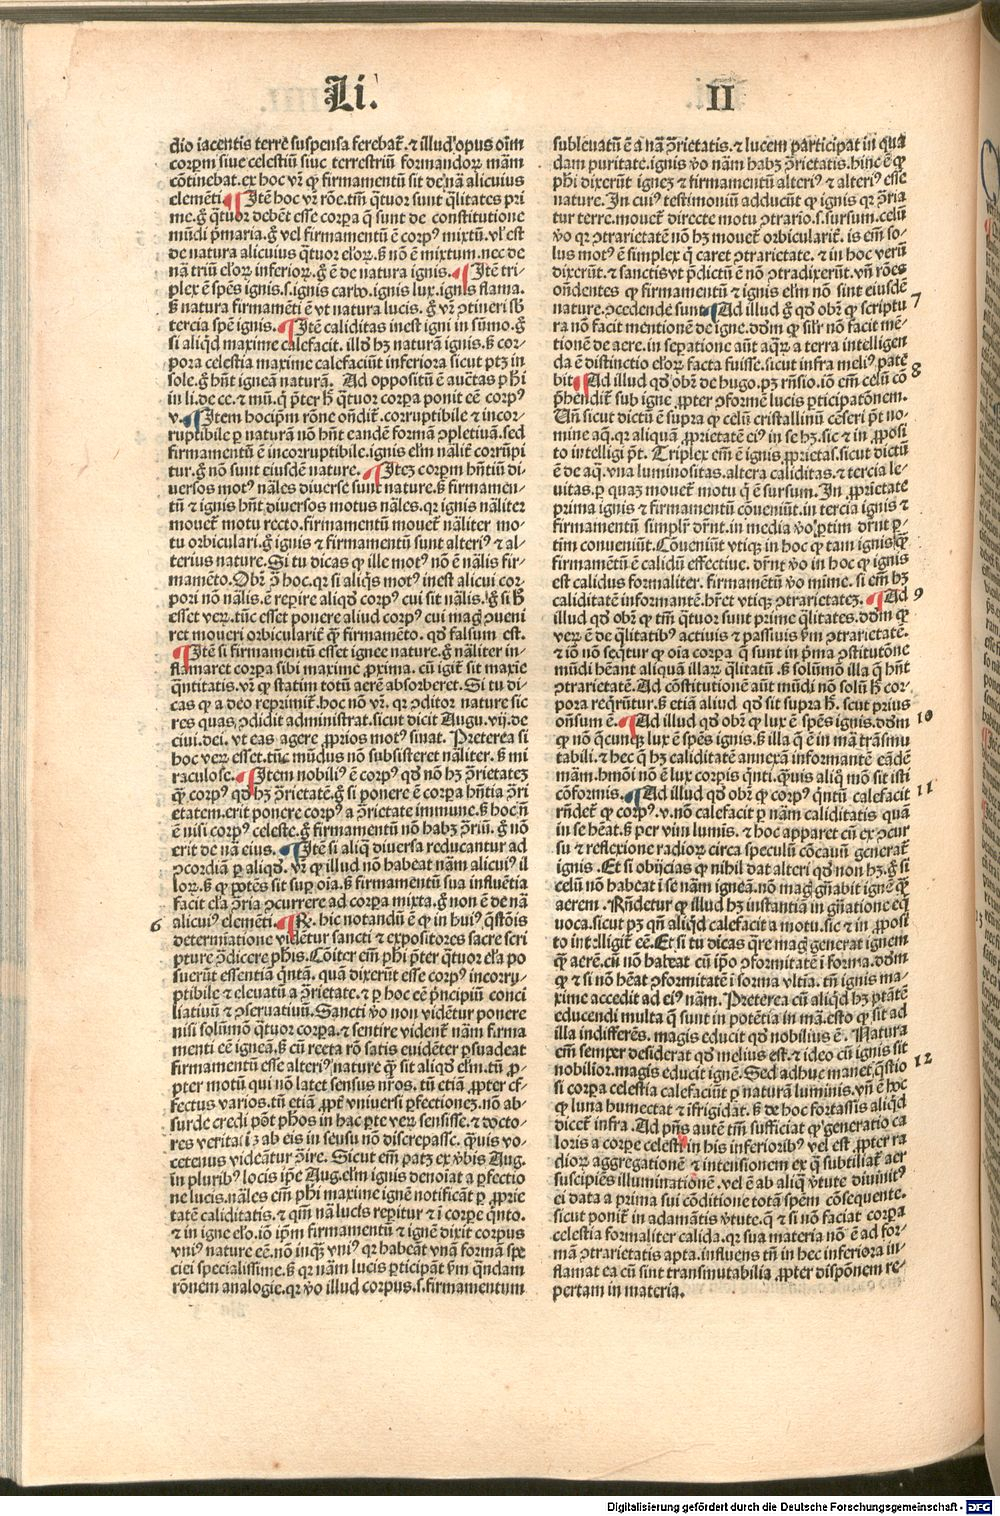 Li.
II
dio iacentis terre suspensa ferebat̃. ⁊ illud opus oĩm
corpm siue celestiũ siue terrestriũ formandoꝝ mãm
cõtinebat. ex hoc vr̃ ꝙ firmamentũ sit de nã alicuius
elemẽti. ¶ Itẽ hoc vr̃ rõe. tm̃ q̃tuor sunt q̃litates pri
me. g̃ q̃tuor debẽt esse corpa q̃ sunt de constitutione
mũdi p̃maria. g̃ vel firmamentũ ẽ corpꝰ mixtũ. vl̃ est
de natura alicuius q̃tuor eloꝝ. ß nõ ẽ mixtum. nec de
nã triũ eloꝝ inferioꝝ. g̃ ẽ de natura ignis. ¶ Itẽ tri-
plex ẽ spẽs ignis. s. ignis carbo. ignis lux. ignis flama.
ß natura firmamẽti ẽ vt natura lucis. g̃ vr̃ ꝯtineri sb̃
tercia spẽ ignis. ¶ Itẽ caliditas inest igni in sũmo. g̃
si aliq̃d maxime calefacit. illđ hꝫ naturã ignis. ß cor-
pora celestia maxime calefaciũt inferiora sicut ptꝫ in
sole. g̃ hñt igneã naturã. Ad oppositũ ẽ auctas phi
in li. de ce. ⁊ mũ. q̃ p̃ter h̃ q̃tuor corpa ponit eẽ corpꝰ
v. ¶ Item hocip̃m rõne oñdit̃. corruptibile ⁊ incor-
ruptibile ꝑ naturã nõ hñt eandẽ formã ꝯpletiuã. sed
firmamentũ ẽ incorruptibile. ignis elm̃ nãlit̃ corrũpi
tur. g̃ nõ sunt eiusdẽ nature. ¶ Iteꝫ corpm hñtiũ di-
uersos motꝰ nãles diuerse sunt nature. ß firmamen-
tũ ⁊ ignis hñt diuersos motus nãles. qr ignis nãliter
mouet̃ motu recto. firmamentũ mouet̃ nãliter mo-
tu orbiculari. g̃ ignis ⁊ firmamentũ sunt alteriꝰ ⁊ al-
terius nature. Si tu dicas ꝙ ille motꝰ nõ ẽ nãlis fir-
mamẽto. Obr̃ ꝑ hoc. qr si aliq̃s motꝰ inest alicui cor-
pori nõ nãlis. ẽ reꝑire aliqđ corpꝰ cui sit nãlis. g̃ si h̃
esset veꝝ. tũc esset ponere aliud corpꝰ cui magꝭ ꝯueni
ret moueri orbicularit̃ ꝙ̃ firmamẽto. qđ falsum est.
¶ Itẽ si firmamentũ esset ignee nature. g̃ nãliter in-
flamaret corpa sibi maxime ꝓxima. cũ igit̃ sit maxie
q̃ntitatis. vr̃ ꝙ statim totũ aerẽ absorberet. Si tu di-
cas ꝙ a deo reprimit̃. hoc nõ vr̃. qr ꝯditor nature sic
res quas ꝯdidit administrat. sicut dicit Augu. vij. de
ciui. dei. vt eas agere ꝓprios motꝰ sinat. Preterea si
hoc veꝝ esset. tũc mũdus nõ subsisteret nãliter. ß mi
raculose. ¶ Item nobiliꝰ ẽ corpꝰ qđ nõ hꝫ ꝯ̃rietateꝫ
ꝙ̃ corpꝰ qđ hꝫ ꝯ̃rietatẽ. g̃ si ponere ẽ corpa hñtia ꝯ̃ri
etatem. erit ponere corpꝰ a ꝯ̃rietate immune. ß hoc ñ
ẽ nisi corpꝰ celeste. g̃ firmamentũ nõ habꝫ ꝯ̃riũ. g̃ nõ
erit de nã eius. ¶ Itẽ si aliq̃ diuersa reducantur ad
ꝯcordiã ꝑ aliqđ. vr̃ ꝙ illud nõ habeat nãm alicuiꝰ il
loꝝ. ß ꝙ potẽs sit suꝑ oĩa. ß firmamentũ sua influẽtia
facit ela ꝯ̃ria ꝯcurrere ad corpa mixta. g̃ non ẽ de nã
alicuiꝰ elemẽti. ¶ Rͦ. hic notandũ ẽ ꝙ in huiꝰ q̃stõis
6
determiatione vidẽtur sancti ⁊ expositores sacre scri
pture ꝯ̃dicere phis. Cõiter em̃ phi p̃ter q̃tuor ela po
suerũt essentiã q̃ntã. quã dixerũt esse corpꝰ incorru-
ptibile ⁊ eleuatũ a ꝯ̃rietate. ⁊ ꝑ hoc eẽ p̃ncipiũ conci
liatiuũ ⁊ ꝯseruatiuũ. Sancti ṽo non vidẽtur ponere
nisi solũmõ q̃tuor corpa. ⁊ sentire vident̃ nãm firma
menti eẽ igneã. ß cũ recta rõ satis euidẽter ꝑsuadeat
firmamentũ esse alteriꝰ nature ꝙ̃ sit aliqđ elm̃. tũ ꝓ-
pter motũ qui nõ latet sensus nr̃os. tũ etiã ꝓpter ef-
fectus varios. tũ etiã ꝓpt̃ vniuersi ꝑfectionez. nõ ab-
surde credi põt phos in hac ꝑte veꝝ sensisse. ⁊ docto-
res veritatis ab eis in sensu nõ discrepasse. q̃uis vo-
cetenus videãtur ꝯ̃ire. Sicut em̃ patꝫ ex ṽbis Aug.
in pluribꝰ locis ip̃e Aug. elm̃ ignis denoĩat a ꝑfectio
ne lucis. nãles em̃ phi maxime ignẽ notificãt ꝑ ꝓprie
tatẽ caliditatis. ⁊ qm̃ nã lucis reꝑitur ⁊ ĩ corpe q̃nto.
⁊ in igne elo. iõ ip̃m firmamentũ ⁊ ignẽ dixit corpus
vniꝰ nature eẽ. nõ inq̃ vniꝰ qr habeãt vnã formã spe
ciei specialissime. ß qr nãm lucis ꝑticipãt ẜm q̃ndam
rõnem analogie. qr ṽo illud corpus. s. firmamentum
subleuatũ ẽ a nã ꝯ̃rietatis. ⁊ lucem participat in qua
dam puritate. ignis ṽo nãm habꝫ ꝯ̃rietatis. hinc ẽ ꝙ
phi dixerũt igneꝫ ⁊ firmamentũ alteriꝰ ⁊ alteriꝰ esse
nature. In cuiꝰ testimoniũ adducũt ꝙ ignis qr ꝯ̃ria
tur terre. mouet̃ directe motu ꝯtrario. s. sursum. celũ
ṽo qr ꝯtrarietatẽ nõ hꝫ mouet̃ orbicularit̃. is em̃ so-
lus motꝰ ẽ simplex q̃ caret ꝯtrarietate. ⁊ in hoc verũ
dixerũt. ⁊ sanctis vt p̃dictũ ẽ nõ ꝯtradixerũt. vñ rões
oñdentes ꝙ firmamentũ ⁊ ignis elm̃ nõ sint eiusdẽ
nature. ꝯcedende sunt. ¶ Ad illud g̃ qđ obr̃ ꝙ scriptu
7
ra nõ facit mentionẽ de igne. dõm ꝙ silr̃ nõ facit mẽ-
tionẽ de aere. in seꝑatione aũt aq̃ꝝ a terra intelligen
da ẽ distinctio eloꝝ facta fuisse. sicut infra meliꝰ pate
bit. ¶ Ad illud qđ obr̃ de hugo. pꝫ rñsio. iõ em̃ celũ cõ
8
p̃hendit̃ sub igne ꝓpter ꝯformẽ lucis ꝑticipatõnem.
Uñ sicut dictũ ẽ supra ꝙ celũ cristallinũ cẽseri p̃t no-
mine aq̃. qr aliquã ꝓprietatẽ eiꝰ in se hꝫ. sic ⁊ in ꝓposi
to intelligi p̃t. Triplex em̃ ẽ ignis ꝓprietas. sicut dictũ
ẽ de aq̃. vna luminositas. altera caliditas. ⁊ tercia le-
uitas. ꝑ quaꝫ mouet̃ motu q̃ ẽ sursum. In ꝓprietate
prima ignis ⁊ firmamentũ cõueniũt. in tercia ignis ⁊
firmamentũ simplr̃ dr̃nt. in media ṽo ꝑtim dr̃nt ꝑ-
tim conueniũt. Cõueniũt vtiqꝫ in hoc ꝙ tam ignis ꝙ̃
firmamentũ ẽ calidũ effectiue. dr̃nt ṽo in hoc ꝙ ignis
est calidus formaliter. firmamẽtũ ṽo mime. si em̃ hꝫ
caliditatẽ informantẽ. hr̃et vtiqꝫ ꝯtrarietateꝫ. ¶ Ad
9
illud qđ obr̃ ꝙ tm̃ q̃tuor sunt prime q̃litates. dõm ꝙ
veꝝ ẽ de q̃litatibꝰ actiuis ⁊ passiuis ẜm ꝯtrarietatẽ.
⁊ iõ nõ seq̃tur ꝙ oĩa corpa q̃ sunt in p̃ma ꝯstitutõne
mũdi hẽant aliquã illaꝝ q̃litatũ. ß solũmõ illa q̃ hñt
ꝯtrarietatẽ. Ad cõstitutionẽ aũt mũdi nõ solũ h̃ cor-
pora req̃runtur. ß etiã aliud qđ sit supra h̃. sicut prius
oñsum ẽ. ¶ Ad illud qđ obr̃ ꝙ lux ẽ spẽs ignis. dõm
10
ꝙ nõ q̃cunqꝫ lux ẽ spẽs ignis. ß illa q̃ ẽ in mã trãsmu
tabili. ⁊ hec q̃ hꝫ caliditatẽ annexã informantẽ eãdẽ
mãm. hmõi nõ ẽ lux corpis q̃nti. q̃uis aliq̃ mõ sit isti
cõformis. ¶ Ad illud qđ obr̃ ꝙ corpꝰ q̃ntũ calefacit
11
rñdet̃ ꝙ corpꝰ. v. nõ calefacit ꝑ nãm caliditatis quã
in se hẽat. ß per vim lumis. ⁊ hoc apparet cũ ex ꝯcur
su ⁊ reflexione radioꝝ circa speculũ cõcauũ generat̃
ignis. Et si obijcias ꝙ nihil dat alteri qđ non hꝫ. g̃ si
celũ nõ habeat ĩ se nãm igneã. nõ magꝭ gñabit ignẽ ꝙ̃
aerem. Rñdetur ꝙ illud hꝫ instantiã in gñatione eq̃
uoca. sicut pꝫ qñ aliq̃d calefacit a motu. sic ⁊ in ꝓposi
to intelligit̃ eẽ. Et si tu dicas q̃re magꝭ generat ignem
ꝙ̃ aerẽ. cũ nõ habeat cũ ip̃o ꝯformitatẽ ĩ forma. dõm
ꝙ ⁊ si nõ hẽat ꝯformitatẽ ĩ forma vltĩa. tñ ignis ma-
xime accedit ad eiꝰ nãm. Preterea cũ aliq̃d hꝫ ptãtẽ
educendi multa q̃ sunt in potẽtia in mã. esto ꝙ sit ad
illa indifferẽs. magis educit qđ nobilius ẽ. Natura
em̃ semper desiderat qđ melius est. ⁊ ideo cũ ignis sit
nobilior. magis educit ignẽ. Sed adhuc manet q̃stio
12
si corpa celestia calefaciũt ꝑ naturã luminis. vñ ẽ hoc
ꝙ luna humectat ⁊ ĩfrigidat. ß de hoc fortassis aliq̃d
dicet̃ infra. Ad p̃ns autẽ tm̃ sufficiat ꝙ generatio ca
loris a corpe celesti in his inferioribꝰ vel est ꝓpter ra
dioꝝ aggregationẽ ⁊ intensionem ex q̃ subtiliat̃ aer
suscipiẽs illuminationẽ. vel ẽ ab aliq̃ ṽtute diuinitꝰ
ei data a prima sui cõditione totã spẽm cõsequente.
sicut ponit̃ in adamãtis ṽtute. q̃ ⁊ si nõ faciat corpa
celestia formaliter calida. qr sua materia nõ ẽ ad for-
mã ꝯtrarietatis apta. influens tñ in hec inferiora in-
flamat ea cũ sint transmutabilia ꝓpter dispõnem re-
pertam in materia.
Digitalisierung gefördert durch die Deutsche Forschungsgemeinschaft - DFG